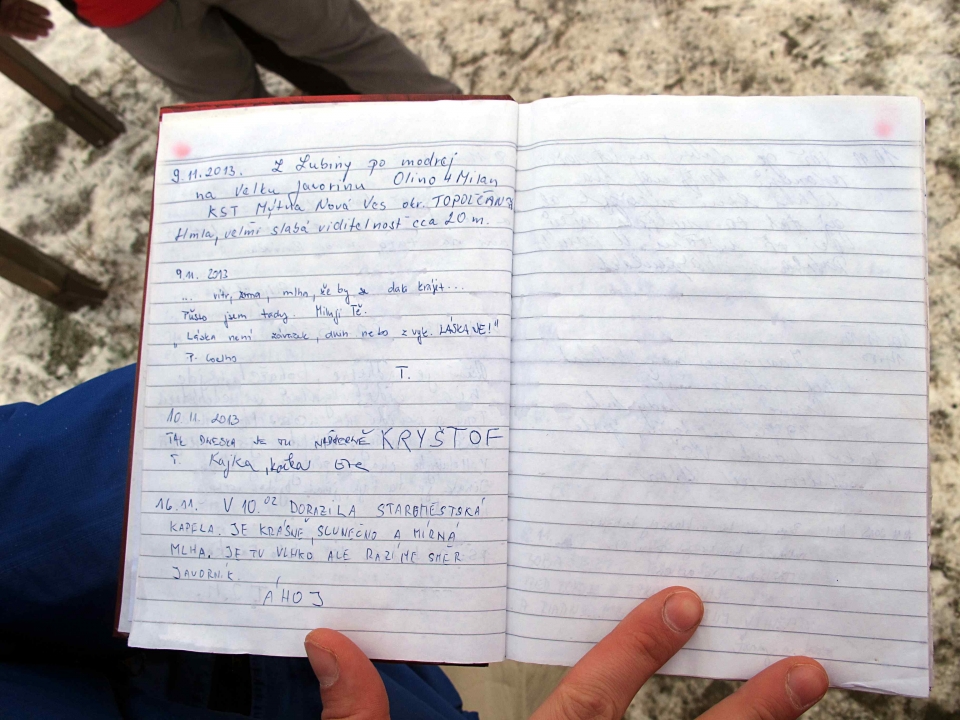 9.11.2013. Z Lubiny po modrej
na Veľkú Javorinu Olino 4 Milan
KST Mýtna Nová Ves okr. TOPOLČANY
Hmla, veľmi slabá viditelnosť cca 20 m.
9.11. 2013
... vítr, zima, mlha, že by se dala krájet...
Tůšto jsem tady. Miluji Tě.
„Láska není závazek, dluh nebo zvyk. LÁSKA JE!"
P. Coelho
T.
10 11. 2013
TAK DNESKA JE TU NÁDHERNĚ KRYŠTOF
T. Kajka, kočka
16.11. - V 10.02 DORAZILA STAROMĚSTSKÁ
KAPELA. JE KRÁSNĚ, SLUNEČNO A MÍRNÁ
MLHA. JE TU VLHKO ALE RAZÍME SMĚR
JAVORNÍK.
ÁHOJ